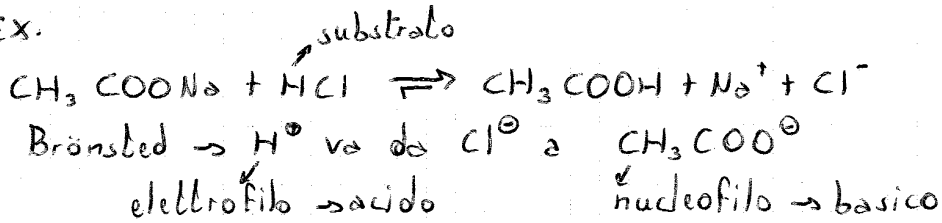 EX.
substrato
CH₃COONa + HCl ⇌ CH₃COOH + Na⁺ + Cl⁻
Brönsted → H⊕ va da Cl⊖ a CH₃COO⊖
elettrofilo → acido nucleofilo → basico